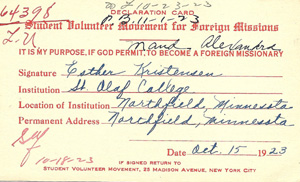 64398
DECLARATION CARD
P.B. 11-1-23
Student Volunteer Movement for Foreign Missions
L.U.
IT IS MY PURPOSE, IF GOD PERMIT, TO BECOME A FOREIGN MISSIONARY
Maud Alexandra
Signature Esther Kristensen
Institution St. Olaf College
Location of Institution Northfield, Minnesota
Permanent Address Northfield, Minnesota
10-18-23
Date Oct. 15 1923
IF SIGNED RETURN TO
STUDENT VOLUNTEER MOVEMENT, 25 MADISON AVENUE, NEW YORK CITY